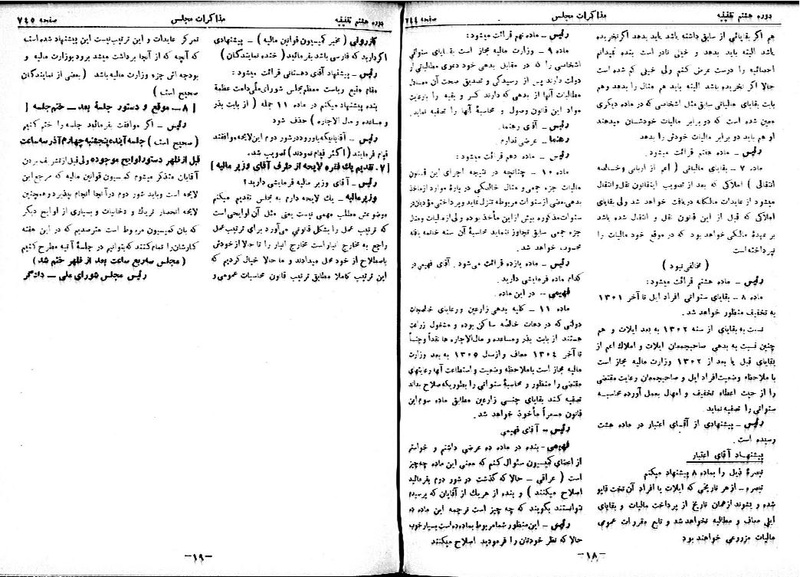 دوره هشتم تقنینیه
مذاکرات مجلس
صفحه ۷۴۴
هم اگر بقایائی از سابق داشته باشد باید بدهد اگر نخریده
باشد البته باید بدهد و خیلی نادر است بنده نمیدانم
احصائیه را درست عرض کنم ولی خیلی کم شده است
حالا اگر نخریده باشد البته باید هم مثال را بدهد و هم
بابت بقایای مطالباتی سابق مثل اشخاصی که در ماده دیگری
معین شده است که در برابر مالیات خودشان میدهند
او هم باید دو برابر مالیات خودش را بدهد
رئیس – ماده هفتم قرائت میشود:
ماده ۷ – بقایای مالیاتی (اعم از اربابی و خالصه
انتقالی) املاکی که بعد از تصویب این قانون نقل و انتقال
میشود از عایدات مالکانه دریافت خواهد شد ولی بقایای
املاکی که قبل از این قانون نقل و انتقال شده باشد
بر عهده مالکی خواهد بود که در موقع خود مالیات را
نپرداخته است
(مخالفی نبود)
رئیس – ماده هشتم قرائت میشود:
ماده ۸ – بقایای سنواتی افراد ایل تا آخر ۱۳۰۱
به تخفیف منظور خواهد شد.
نسبت به بقایای از سنه ۱۳۰۲ به بعد ایلات و هم
چنین نسبت به بدهی صاحبجمعان ایلات و املاک اعم از
بقایای قبل یا بعد از ۱۳۰۲ وزارت مالیه مجاز است
با ملاحظه وضعیت افراد ایل و صاحبجمعان رعایت مقتضی
را از حیث اعطاء تخفیف و امهال بعمل آورده محاسبه
سنواتی را تصفیه نماید
رئیس – پیشنهادی از آقای اعتبار در ماده هشت
رسیده است.
پیشنهاد آقای اعتبار
تبصره ذیل را بماده ۸ پیشنهاد میکنم
تبصره – از هر تاریخی که ایلات یا افراد آن تخت قاپو
شده و بشوند از همان تاریخ از پرداخت مالیات و بقایای
ایلی معاف و مطالبه نخواهد شد و تابع مقررات عمومی
مالیات مزروعی خواهند بود
رئیس – ماده نهم قرائت میشود:
ماده ۹ – وزارت مالیه مجاز است بقایای سنواتی
اشخاصی را که در مقابل بدهی خود دعوی مطالباتی از
دولت دارند پس از رسیدگی و تصدیق صحت آن معادل
مطالبات آنها از بدهی که دارند کسر و بقیه را با رعایت
مواد این قانون وصول و محاسبه آنها را تصفیه نماید.
رئیس – آقای رهنما.
رهنما – عرضی ندارم.
رئیس – ماده دهم قرائت میشود:
ماده ۱۰ – چنانچه در نتیجه اجرای این قانون
مالیات جزء جمعی و مثال خالصگی در بارهٔ موارد از مأخذ
بدهی بعضی از سنوات مربوطه متنزل نماید و پرداختی مؤدیان در
سنوات مذکوره بیش از این مأخذ بوده ولی از مالیات و مثال
جزء جمعی سابق تجاوز ننماید محاسبه آن سنه خاتمه یافته
محسوب خواهد شد.
رئیس – ماده یازده قرائت میشود. آقای فهیمی در
کدام ماده فرمایشی دارید؟
فهیمی – در این ماده.
ماده ۱۱ – کلیه بدهی زارعین و رعایای خالصجات
دولتی که در دهات خالصه ساکن بوده و مشغول زراعت
هستند از بابت بذر و مساعده و مال الاجاره ها نقداً و جنساً
تا آخر ۱۳۰۴ معاف و از سال ۱۳۰۵ به بعد وزارت
مالیه مجاز است با ملاحظه وضعیت و استطاعت آنها رعایتهای
مقتضی را منظور و محاسبهٔ سنواتی را بطوریکه صلاح بداند
تصفیه کند بقایای جنسی زارعین مطابق ماده سوم این
قانون مسعراً مأخوذ خواهد شد.
رئیس – آقای فهیمی
فهیمی – بنده در ماده ده عرضی داشتم و خواستم
از اعضای کمیسیون سئوال کنم که معنی این ماده چه چیز
است (عراقی – حالا که گذشت در شور دوم بفرمائید
اصلاح میکنند) و بنده از هر یک از آقایان که پرسیدم
نتوانستند بگویند که چه چیز است ترجمه این ماده
رئیس – این منظور شما مربوط بماده ده است بسیار خوب
حالا که نظر خودتان را فرمودید اصلاح میکنند
–۱۸–
دوره هشتم تقنینیه
مذاکرات مجلس
صفحه ۷۴۵
کازرونی (مخبر کمیسیون قوانین مالیه) – پیشنهادی
اگر دارید که فارسی باشد بفرمائید (خنده نمایندگان)
رئیس – پیشنهاد آقای دهستانی قرائت میشود:
مقام منیع ریاست معظم مجلس شورای ملی دامت عظمته
بنده پیشنهاد میکنم در ماده ۱۱ جمله (از بابت بذر
و مساعده و مال الاجاره) حذف شود
رئیس – آقایانیکه با ورود در شور دوم این لایحه موافقند
قیام فرمایند (اکثر قیام نمودند) تصویب شد.
[۷ – تقدیم یک فقره لایحه از طرف آقای وزیر مالیه]
رئیس – آقای وزیر مالیه فرمایشی دارید؟
وزیر مالیه – یک لایحه دارم به مجلس تقدیم میکنم
موضوعش مطلب مهمی نیست یعنی مثل آن لوایحی است
که ترتیب عمل را بشکل قانونی می‌آورد برای ترتیب عمل
راجع به مخارج انبار است مخارج انبار را تا حالا از خودش
باصطلاح از خود محل میدادند و ما حالا خیال کردیم که
این ترتیب کاملا مطابق ترتیب قانون محاسبات عمومی و
تمرکز عایدات و این ترتیب نیست این پیشنهاد شده است
که آنچه که از آنجا برداشت میشد برود بوزارت مالیه و
بودجه اش جزء وزارت مالیه باشد (بعضی از نمایندگان
صحیح است)
[۸ – موقع و دستور جلسهٔ بعد – ختم جلسه]
رئیس – اگر موافقت بفرمائید جلسه را ختم کنیم
(صحیح است) جلسه آینده پنجشنبه چهارم آذر سه ساعت
قبل از ظهر دستور لوایح موجوده ولی قبل از متفرق شدن
آقایان متذکر میشوم کمیسیون قوانین مالیه که مرجع این
لایحه است و باید شور دوم در آنجا انجام بپذیرد و همچنین
لایحه انحصار تریاک و دخانیات و بسیاری از لوایح دیگر
که بآن کمیسیون مربوط است مترصدیم که در این هفته
کارشان را تمام کنند که بتوانیم در جلسهٔ آتیه مطرح کنیم
(مجلس سه ربع ساعت بعد از ظهر ختم شد)
رئیس مجلس شورای ملی – دادگر
–۱۹–